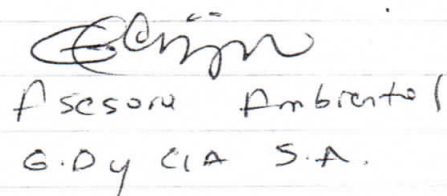 Asesora Ambiental
G.D y CIA S.A.